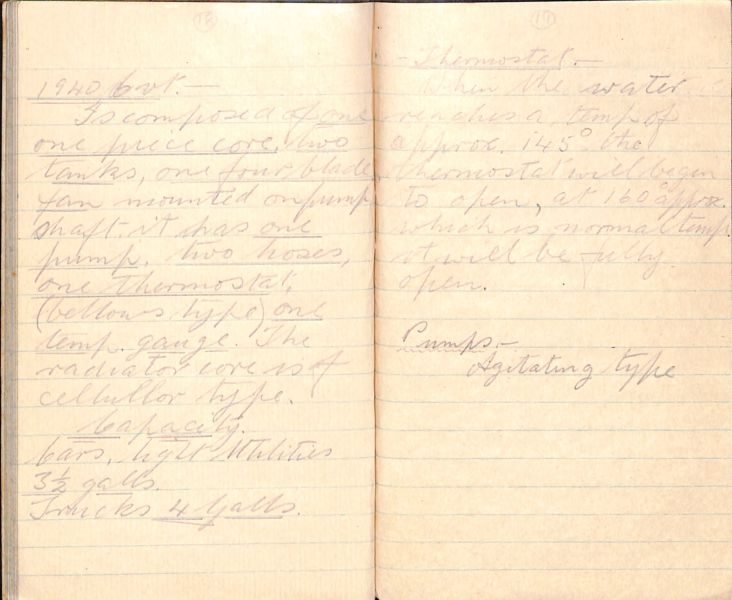 18
1940 Cvt. —
Is composed of one
one piece core, two
tanks, one four blade
fan mounted on pump
shaft. it has one
pump, two hoses,
one thermostat,
(bellows type) one
temp. gauge. The
radiator core is of
cellullor type.
Capacity.
Cars, light Utilities
3½ galls.
Trucks 4 Galls.
19
- Thermostat. -
When the water
reaches a temp of
approx. 145° the
thermostat will begin
to open, at 160° approx.
which is normal temp
it will be fully
open.
Pumps.-
Agitating type